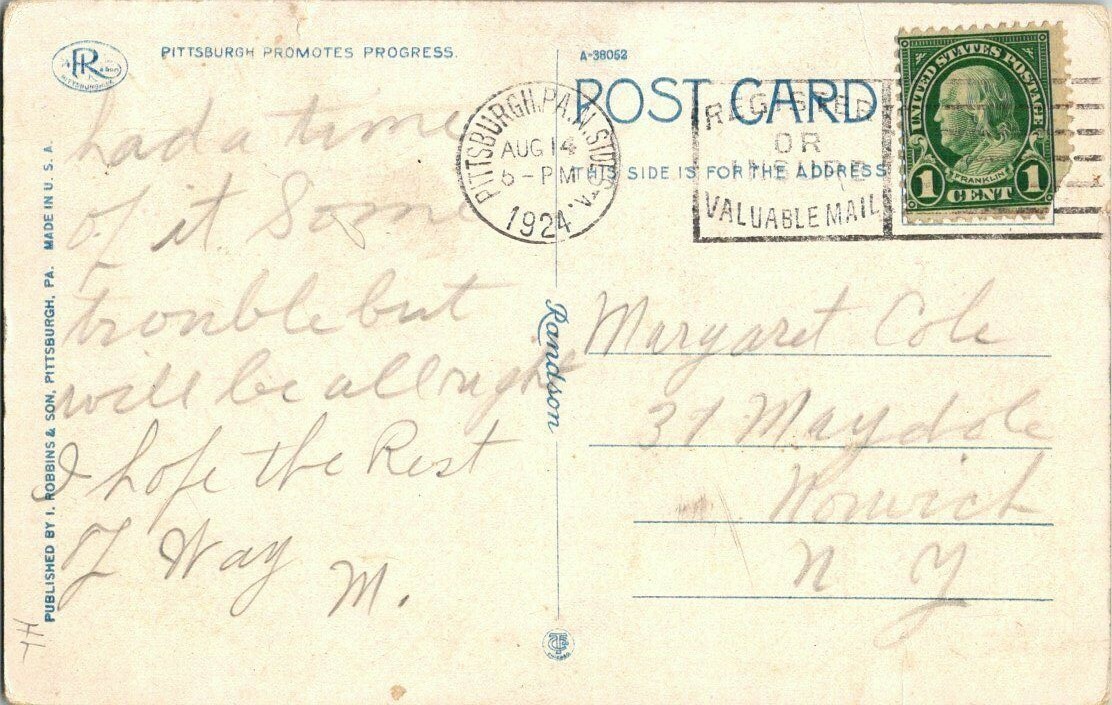 PR & Son
PITTSBURGH, PA.
PITTSBURGH PROMOTES PROGRESS.
PUBLISHED BY I. ROBBINS & SON, PITTSBURGH, PA. MADE IN U. S. A.
had a time
of it Some
trouble but
will be allright
I hope the Rest
of Way
M.
TH
A-38052
POST CARD
THIS SIDE IS FOR THE ADDRESS
PITTSBURGH, PA. N. SIDE STA.
AUG 14
6 - PM
1924
REGISTER
OR
INSURE
VALUABLE MAIL
UNITED STATES POSTAGE
FRANKLIN
1 CENT 1
Randson
Margaret Cole
37 Maydole
Norwich
N Y